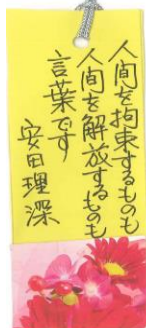 人間を拘束するものも
人間を解放するものも
言葉です
安田理深